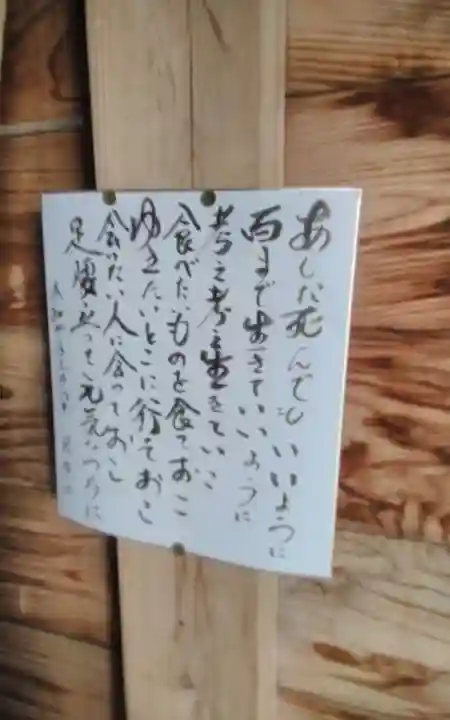 あした死んでもいいように
百まで生きていいように
考え考え生きていこ
食べたいものを食ておこ
ゆきたいとこに行ておこ
会いたい人に会っておこ
足腰立って元気なうちに